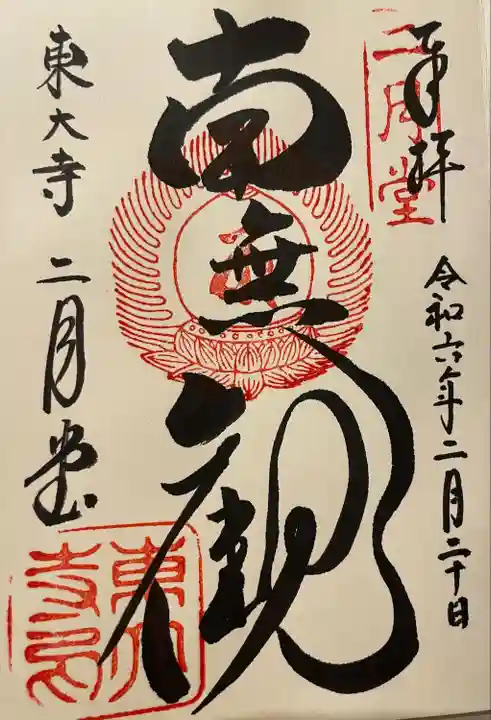 奉拝
二月堂
令和六年二月二十日
南無観
東大寺 二月堂
東大寺印